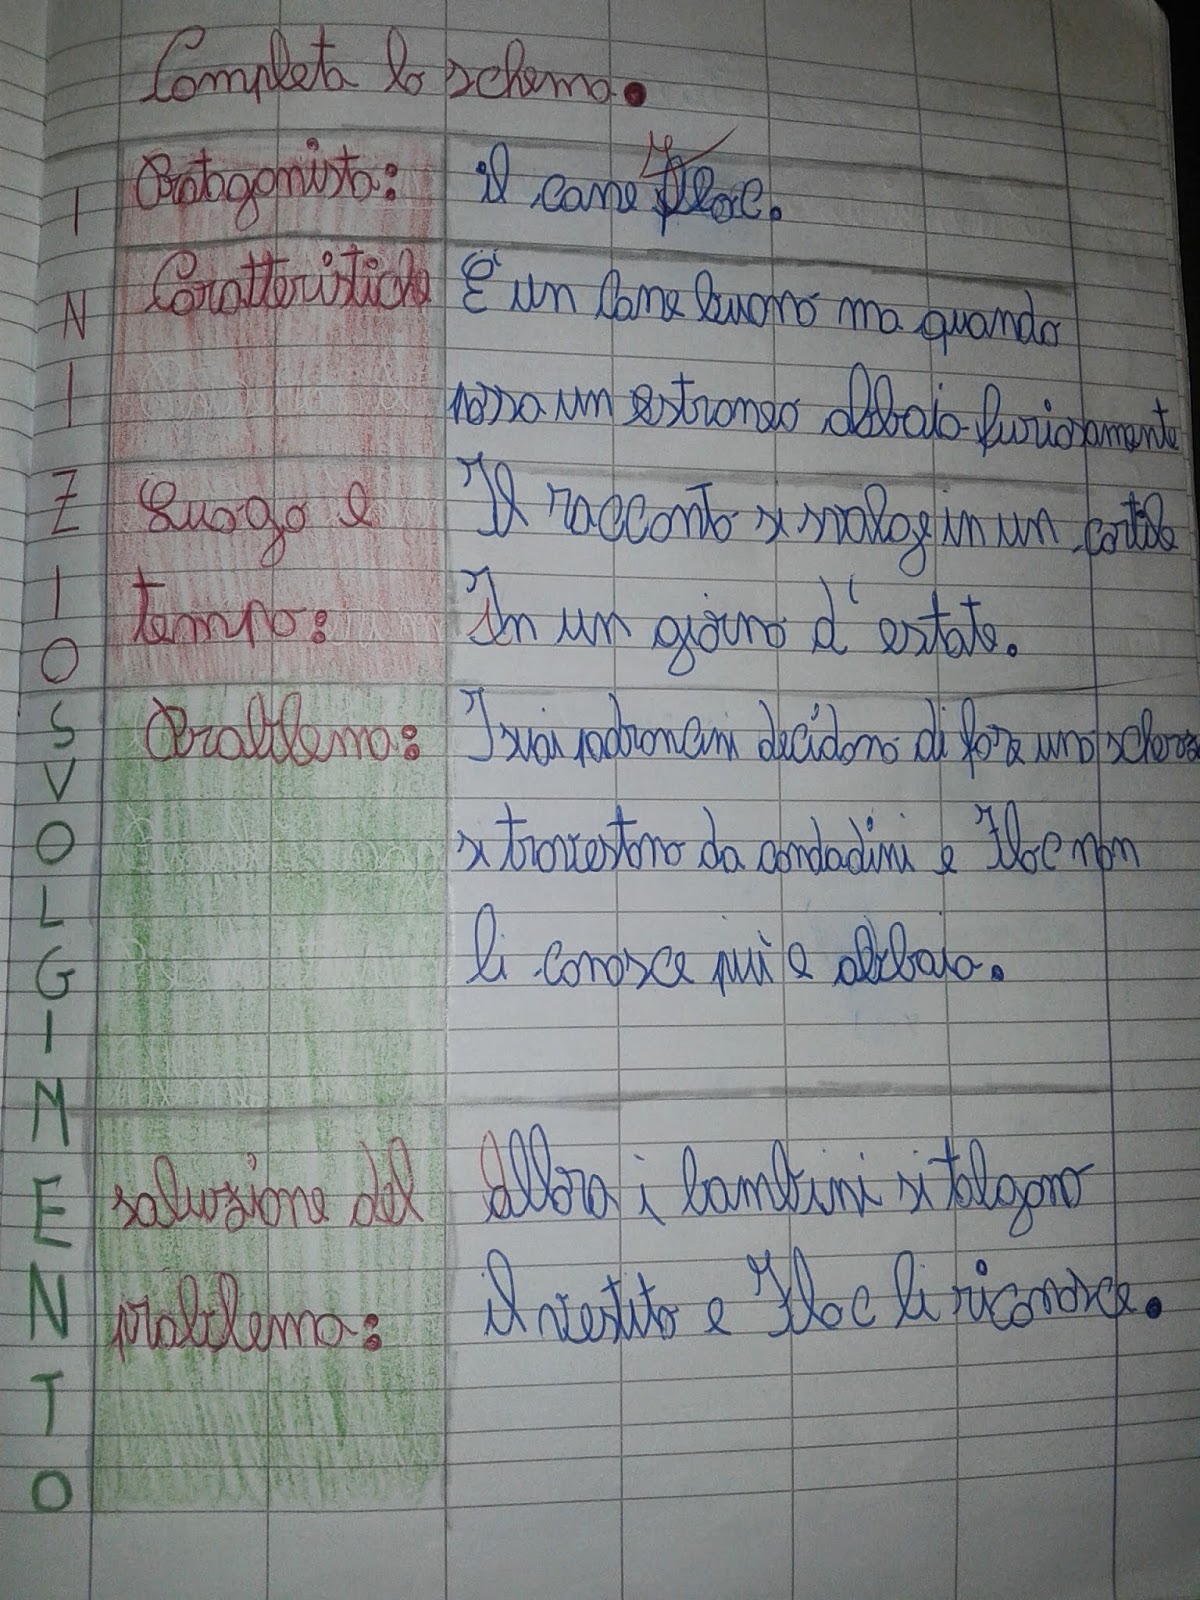 Completa lo schema.
INIZIO
Protagonista: il cane Floc.
Caratteristiche È un cane buono ma quando
passa un estraneo abbaia furiosamente
Luogo e Il racconto si svolge in un cortile
tempo: In un giorno d'estate.
SVOLGIMENTO
Problema: I suoi padroncini decidono di fare uno scherzo
si travestono da condadini e Floc non
li conosce pui e abbaia.
soluzione del Allora i bambini si tolgono
problema: il vestito e Floc li riconosce.